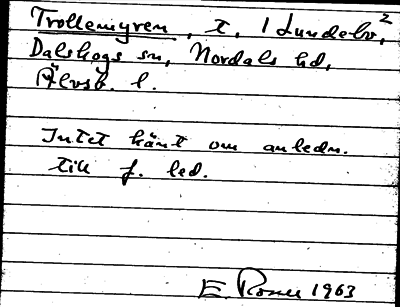 Trollemyren, t, 1 Lundebo,²
Dalskogs sn, Nordals hd,
Älvsb. l.
Intet känt om anledn.
till f. led.
E. Rosell 1963